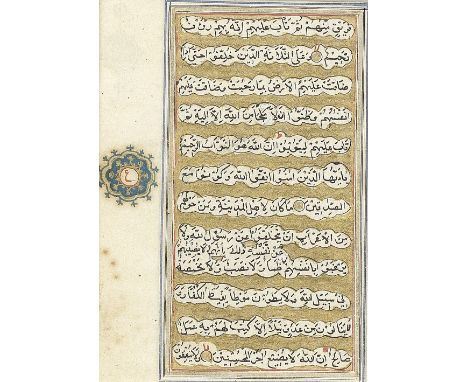 فريق منهم ثم تاب عليهم انه بهم رؤف
رحيم وعلى الثلاثة الذين خلفوا حتى اذا
ضاقت عليهم الارض بما رحبت وضاقت عليهم
انفسهم وظنوا ان لا ملجأ من الله الا اليه ثم
تاب عليهم ليتوبوا ان الله هو التواب الرحيم
ياايها الذين امنوا اتقوا الله وكونوا مع
الصادقين ما كان لاهل المدينة ومن حولهم
من الاعراب ان يتخلفوا عن رسول الله ولا
عن نفسه ذلك بانهم لا يصيبهم
يرغبوا بانفسهم ظمأ ولا نصب ولا مخمصة
في سبيل الله ولا يطؤن موطئا يغيظ الكفار
ولا ينالون من عدو نيلا الا كتب لهم به عمل
صالح ان الله لا يضيع اجر المحسنين ولا ينفقون